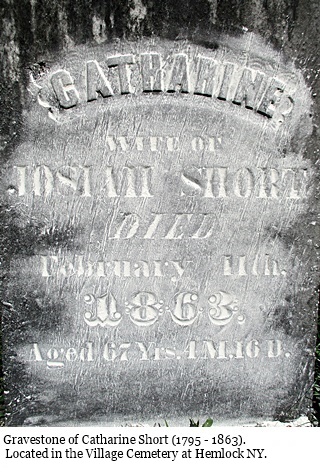 CATHARINE
WIFE OF
JOSIAH SHORT
DIED
February 11th.
1863.
Aged 67 Yrs. 4 M. 16 D.
Gravestone of Catharine Short (1795 - 1863).
Located in the Village Cemetery at Hemlock NY.